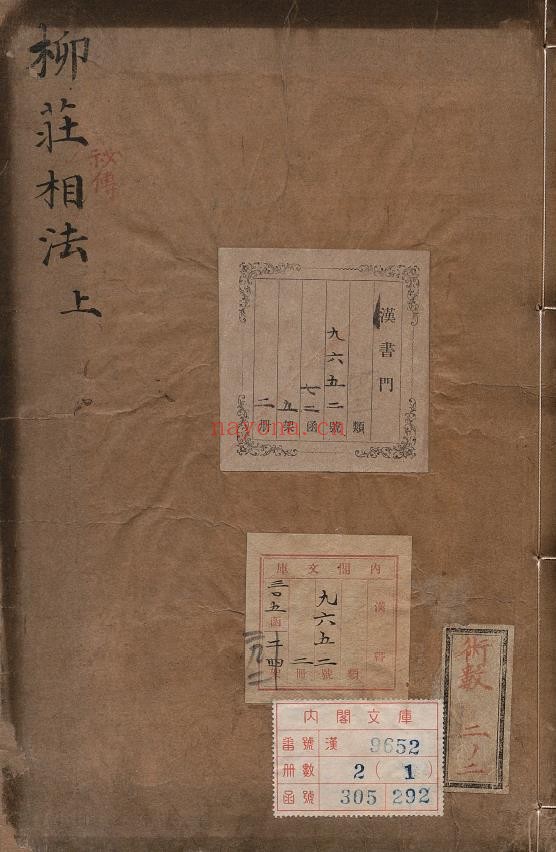 柳莊相法 上
秘傳
漢書門
類
九六五二號
七二函
九架
二冊
nayona.cn
內閣文庫
漢書
類
九六五二號
二冊
三〇五函
二四架
二九二
術數
二ノ二
內閣文庫
番號 漢 9652
冊數 2 (1)
函號 305 292